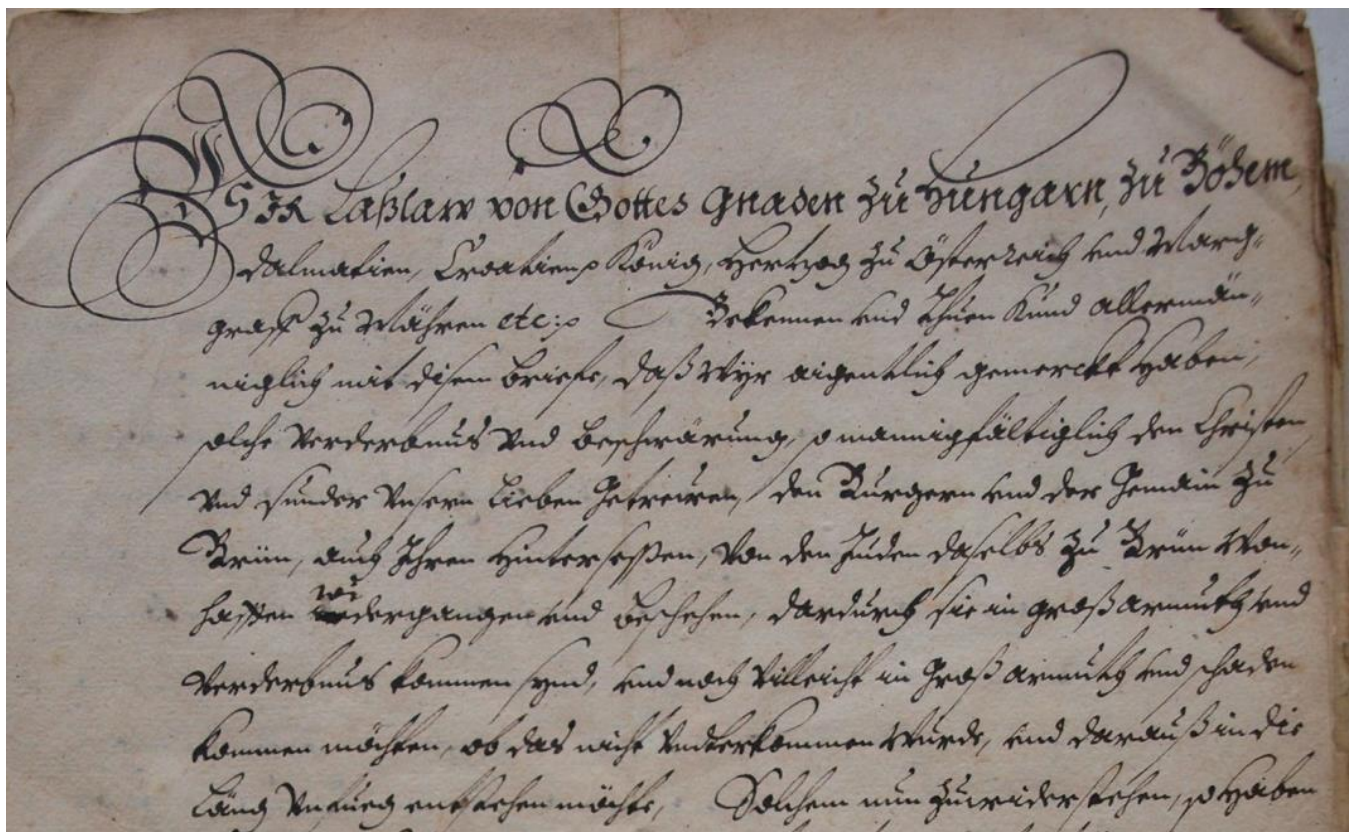 WIR Laßlaw von Gottes gnaden zu Hungarn, zu Böhem,
Dalmatien, Croatien p König, Hertzog zu Österreich vnd March-
graff zu Mähren etc: p Bekennen vnd Thuen Kund allermän-
niglich mit disem brieffe, daß Wyr aigentlich gemerckt haben,
solche Verderbnus Vnd beschwärung, so mannigfältiglich den Christen
Vnd sunder Vnsern lieben Getrewen, den Burgern vnd der Gemain zu
Brünn, auch Ihren Hintersessen, Von den Juden daselbs zu Brünn Won-
hafften widergangen vnd beschehen, dardurch sie in groß armuth vnd
Verderbnus kommen synd, vnd noch Villeicht in Groß armuth vnd schaden
kommen möchten, ob das nicht Vnterkommen Wurde, vnd darauß in die
Läng Vnfueg entstehen möchte, Solchem nun zuwiderstehen, so Haben